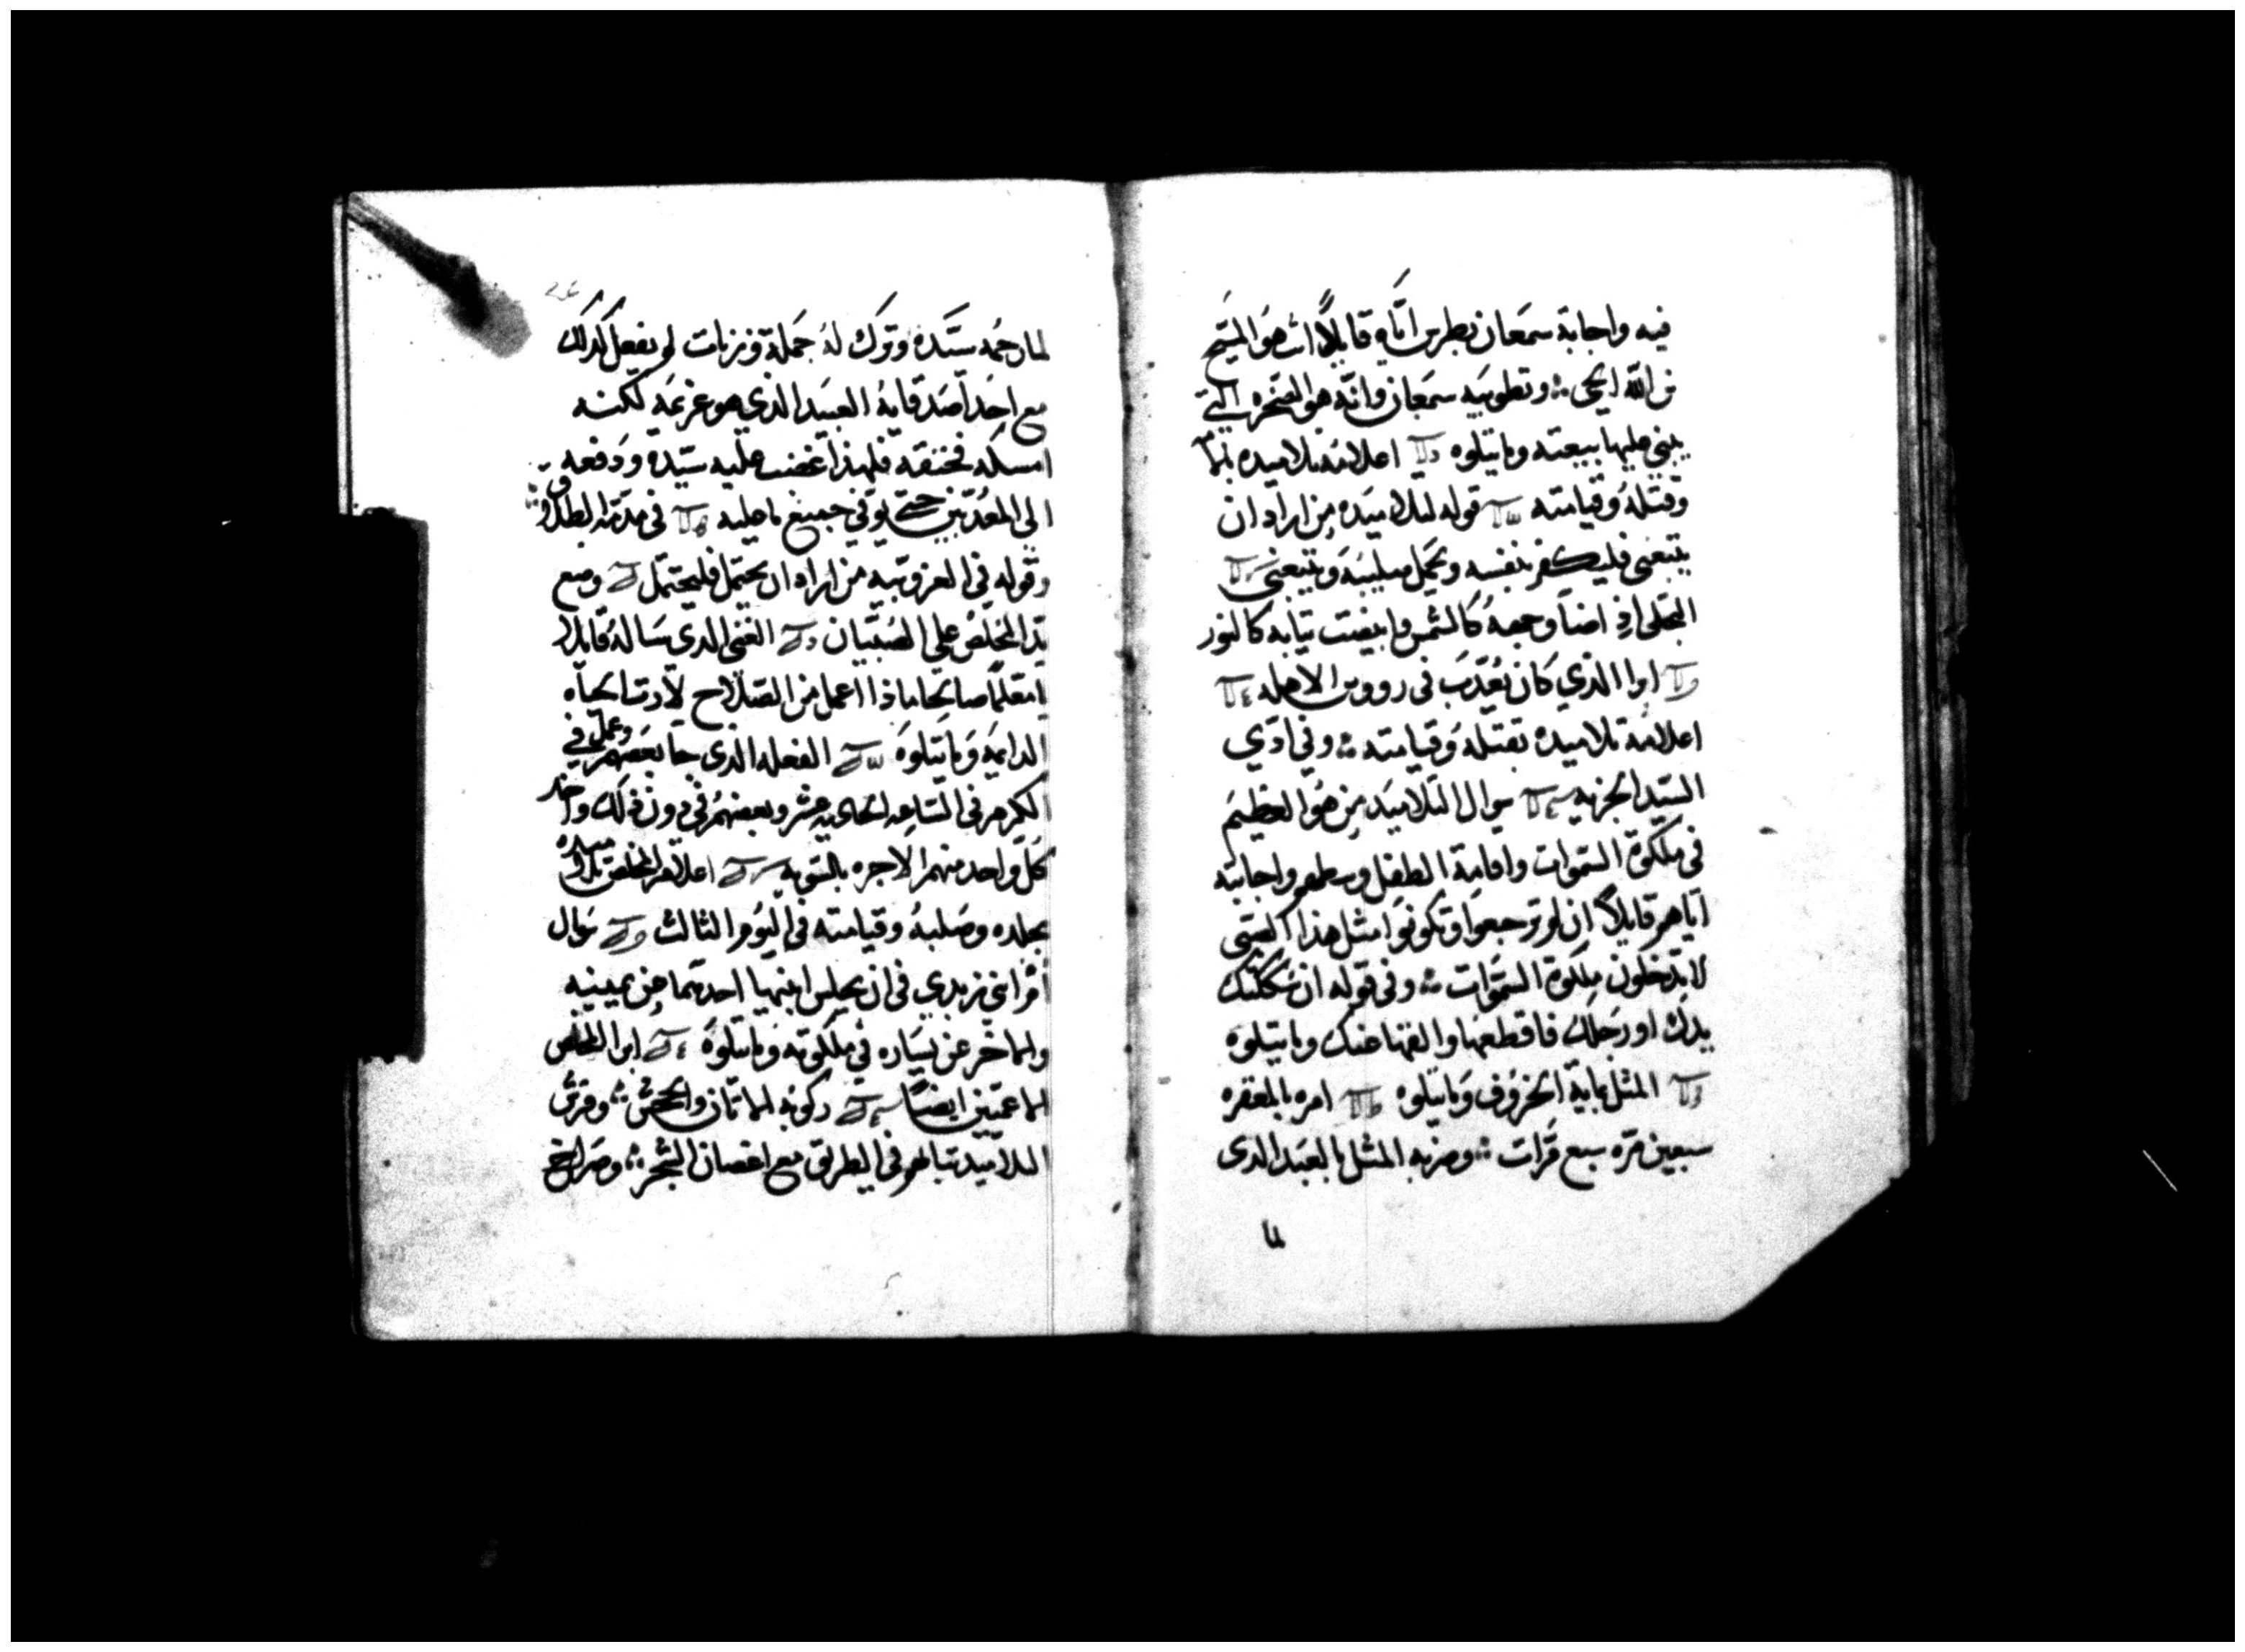 فيه واجابة سمعان بطرس اياه قايلاً انت هو المسيح
بن الله الحي ۞ وتطويبه سمعان وانه هو الصخره التي
يبني عليها بيعته وما يتلوه اعلامه تلاميده بالما
وقتله وقيامته قوله لتلاميده من اراد ان
يتبعني فليكفر بنفسه ويحمل صليبه ويتبعني
التجلي اذ اضا وجهه كالشمس وابيضت تيابه كالنور
ابرا الذي كان يعذب في روس الاهله
اعلامه تلاميده بقتله وقيامته ۞ وفي ادي
السيد الجزيه سوال التلاميد من هو العظيم
في ملكوة السموات واقامة الطفل وسطهم واجابته
اياهم قايلاً ان لم ترجعوا وتكونوا مثل هذا الصبي
لا تدخلون ملكوة السموات ۞ وفي قوله ان شككتك
يدك او رجلك فاقطعها والقها عنك وما يتلوه
المثل بماية الخروف وما يتلوه امره بالمغفره
سبعين مره سبع مرات ۞ وضربه المثل بالعبد الدي
لما
لما رحمه سيده وترك له جملة وزنات لم يفعل كدلك
مع احد اصدقايه العبيد الذي هو غريمه لكنه
امسكه فخنقه فلهذا غضب عليه سيده ودفعه
الى المعدبين حتى يوفي جميع ما عليه في مدمة الطلاق
وقوله في العزوبيه من اراد ان يحتمل فليحتمل وضع
يد المخلص على الصبيان الغني الدي ساله قايلا
يا معلماً صالحا ماذا اعمل من الصلاح لارت الحياه
الدايمه وما يتلوه الفعله الذي جا بعضهم وعمل في
الكرم في الساعه الحاديه عشر وبعضهم في دون ذلك واخد
كل واحد منهم الاجره بالسويه اعلام المخلص تلاميده
بجلده وصلبه وقيامته في اليوم الثالث سوال
امراة زبدي في ان يجلس ابنيها احدهما عن يمينه
والاخر عن يساره في ملكوته وما يتلوه ابرا المخلص
الاعميين ايضاً ركوبه الاتان والجحش ۞ وفرش
التلاميد تيابهم في الطريق مع اغصان الشجر ۞ وصراخ